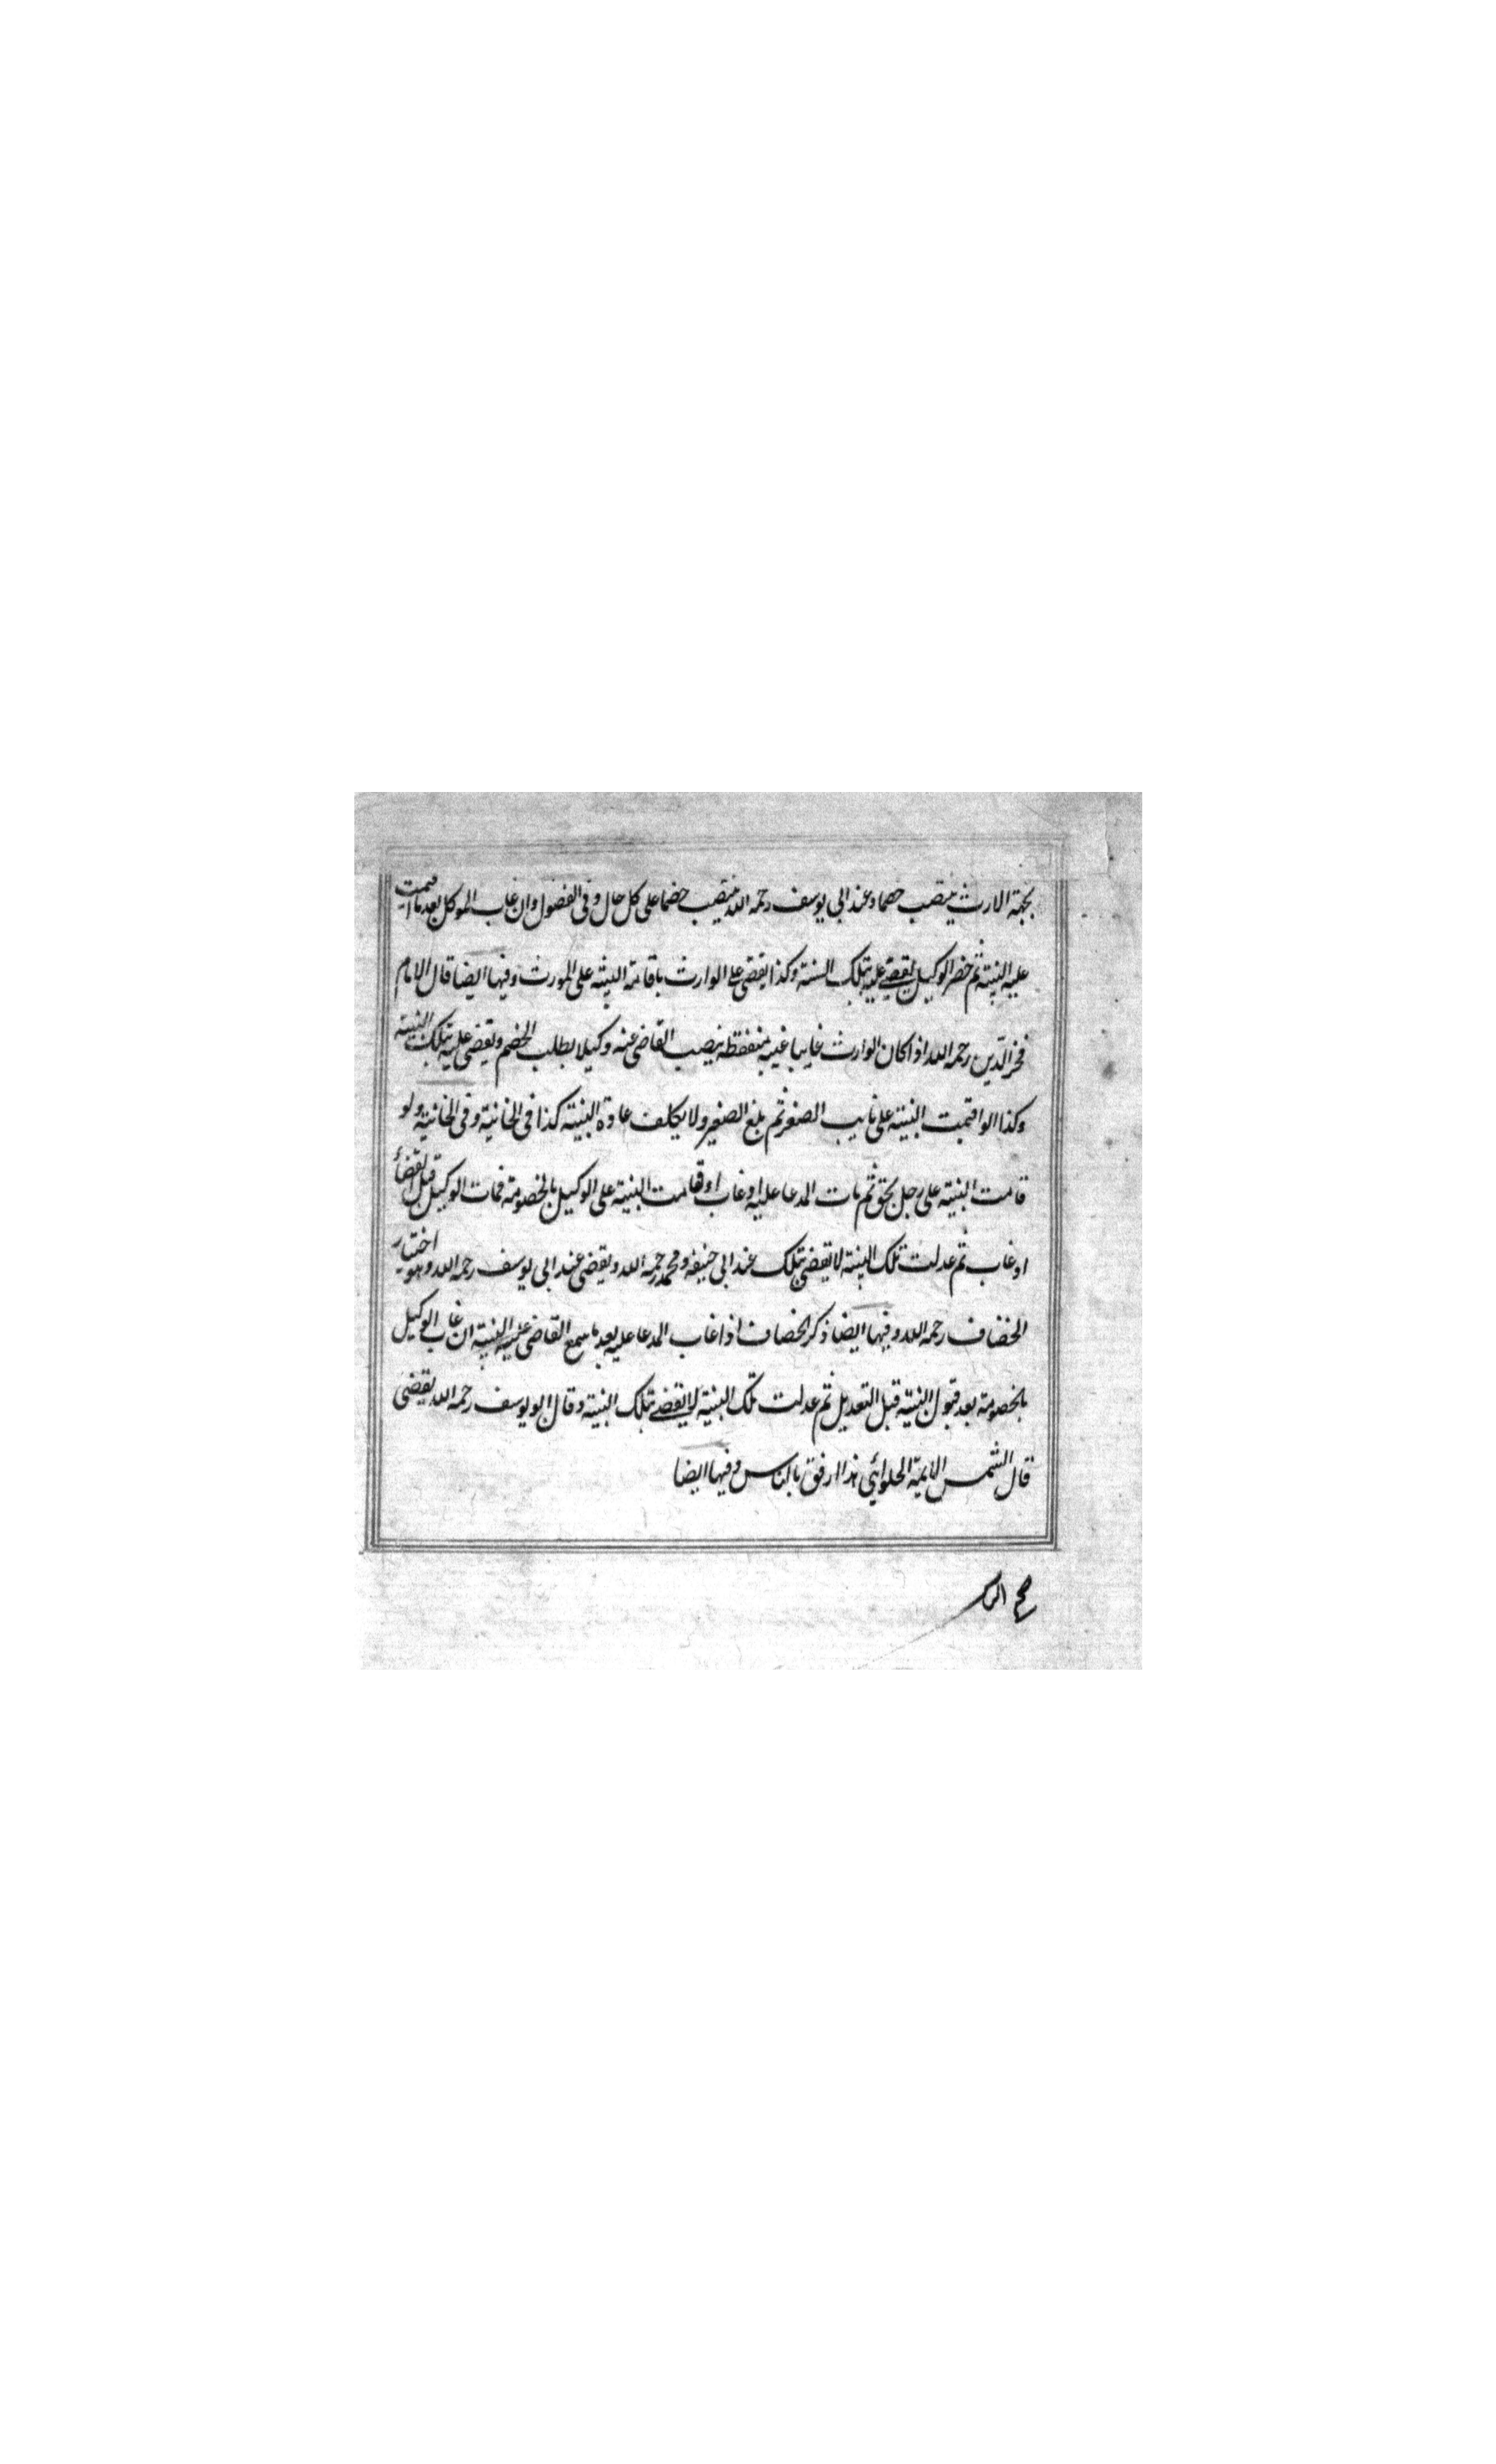 بجهة الارث ينتصب خصما وعند ابي يوسف رحمه الله ينتصب خصما على كل حال وفي الفصول وان غاب الموكل بعد ما اقيمت
عليه البينة ثم حضر الوكيل يقضي عليه بتلك البينة وكذا يقضى على الوارث باقامة البينة على المورث وفيها ايضا قال الامام
فخر الدين رحمه الله اذا كان الوارث غايبا غيبة منقطعة ينصب القاضي عنه وكيلا بطلب الخصم ويقضى عليه بتلك البينة
وكذا لو اقيمت البينة على نايب الصغير ثم بلغ الصغير ولا يكلف عادة البينة كذا في الخانية وفي الخانية ولو
قامت البينة على رجل بحق ثم مات المدعا عليه او غاب او قامت البينة على الوكيل بالخصومة فمات الوكيل قبل القضأ
او غاب ثم عدلت تلك البينة لا يقضى بتلك عند ابي حنيفة ومحمد رحمه الله ويقضى عند ابي يوسف رحمه الله وهو اختيار
الخصاف رحمه الله وفيها ايضا ذكر الخصاف اذا غاب المدعا عليه بعد ما سمع القاضي عليه البينة ان غاب الوكيل
بالخصومة بعد قبول البينة قبل التعديل ثم عدلت تلك البينة لا يقضى بتلك البينة وقال ابو يوسف رحمه الله يقضى
قال الشمس الايمة الحلوائي هذا ارفق بالناس وفيها ايضا